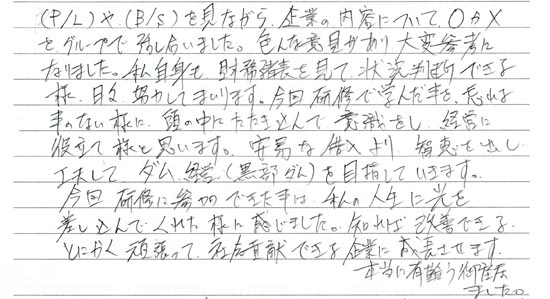 (P/L)や、(B/S)を見ながら、企業の内容について、OかX
を、グループで話し合いました。色んな意見があり、大変参考に
なりました。私自身も、財務諸表を見て、状況判断できる
様、日々、努力してまいります。今回研修で学んだ事を、忘れる
事のない様に、頭の中にたたき込んで、意識をし、経営に
役立て様と思います。安易な借入より、智恵を出し、
工夫して、ダム経営(黒部ダム)を目指していきます。
今回、研修に参加できた事は、私の人生に光を
差し込んでくれた様に感じました。知れば改善できる。
とにかく頑張って、社会貢献できる企業に成長させます。
本当に有難う御座居
ました。